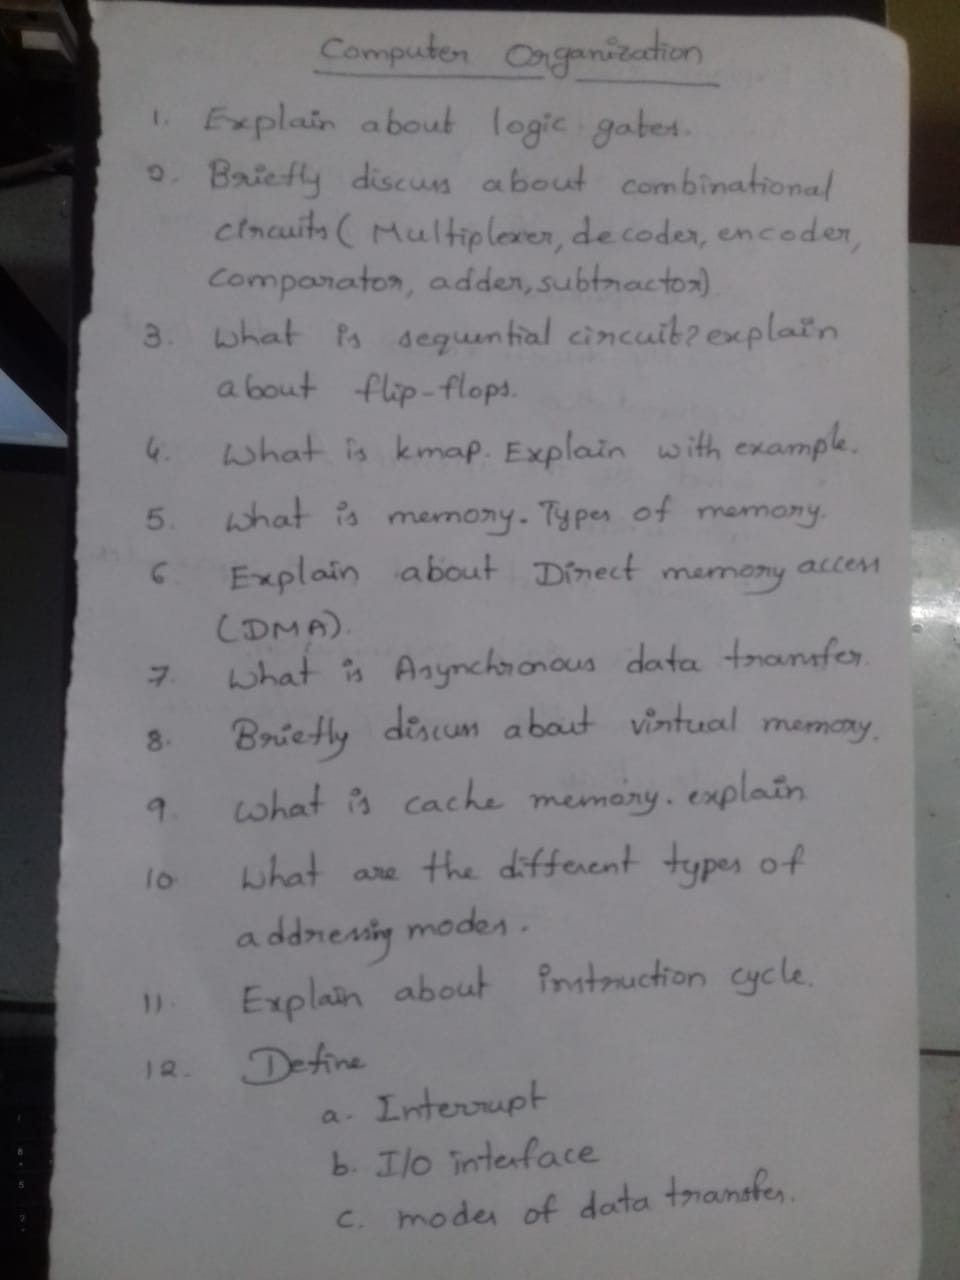 Computer Organization
1. Explain about logic gates.
2. Briefly discuss about combinational
circuits ( Multiplexer, decoder, encoder,
comparator, adder, subtractor)
3. What is sequential circuit? explain
about flip-flops.
4. What is kmap. Explain with example.
5. What is memory. Types of memory.
6 Explain about Direct memory access
(DMA).
7. What is Asynchronous data transfer.
8. Briefly discuss about virtual memory.
9. What is cache memory. explain
10. What are the different types of
addressing modes.
11. Explain about instruction cycle.
12. Define
a. Interrupt
b. I/O interface
c. modes of data transfer.